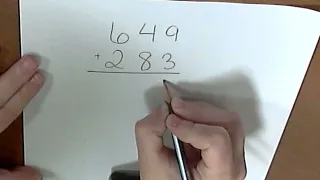 649
+283